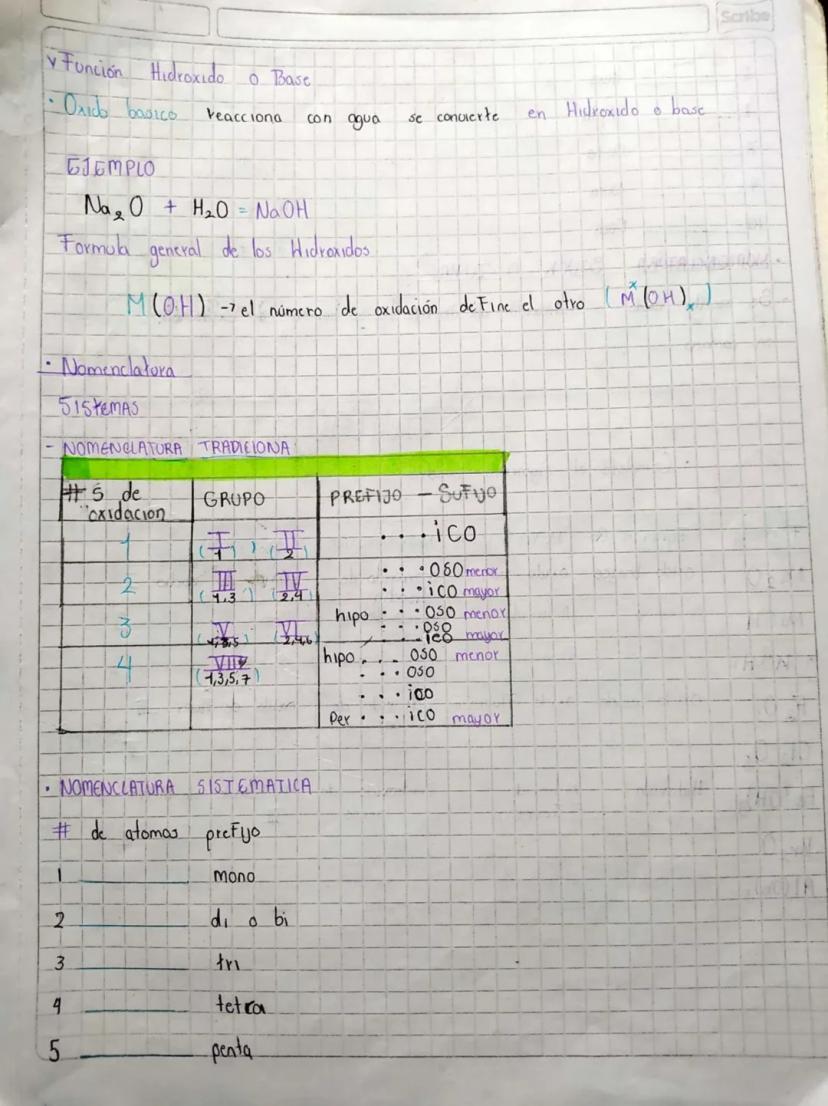 Scribe
Función Hidroxido o Base
· Oxido basico reacciona con agua se convierte en Hidroxido o base
EJEMPLO
Na₂O + H₂O = NaOH
Formula general de los Hidroxidos
M(OH) → el número de oxidación define el otro (Mˣ(OH)ₓ)
· Nomenclatura
SISTEMAS
- NOMENCLATURA TRADICIONA
#s de oxidacion GRUPO PREFIJO - SUFIJO
1 I (1), II (2) ...ico
2 III (1,3) IV (2,4) ...oso menor
...ico mayor
3 V VI 2,4,6 hipo ...oso menor
...oso
...ico mayor
4 VII (1,3,5,7) hipo... oso menor
...oso
...ico
Per ...ico mayor
· NOMENCLATURA SISTEMATICA
# de atomos prefijo
1 ______ mono
2 ______ di o bi
3 ______ tri
4 ______ tetra
5 ______ penta